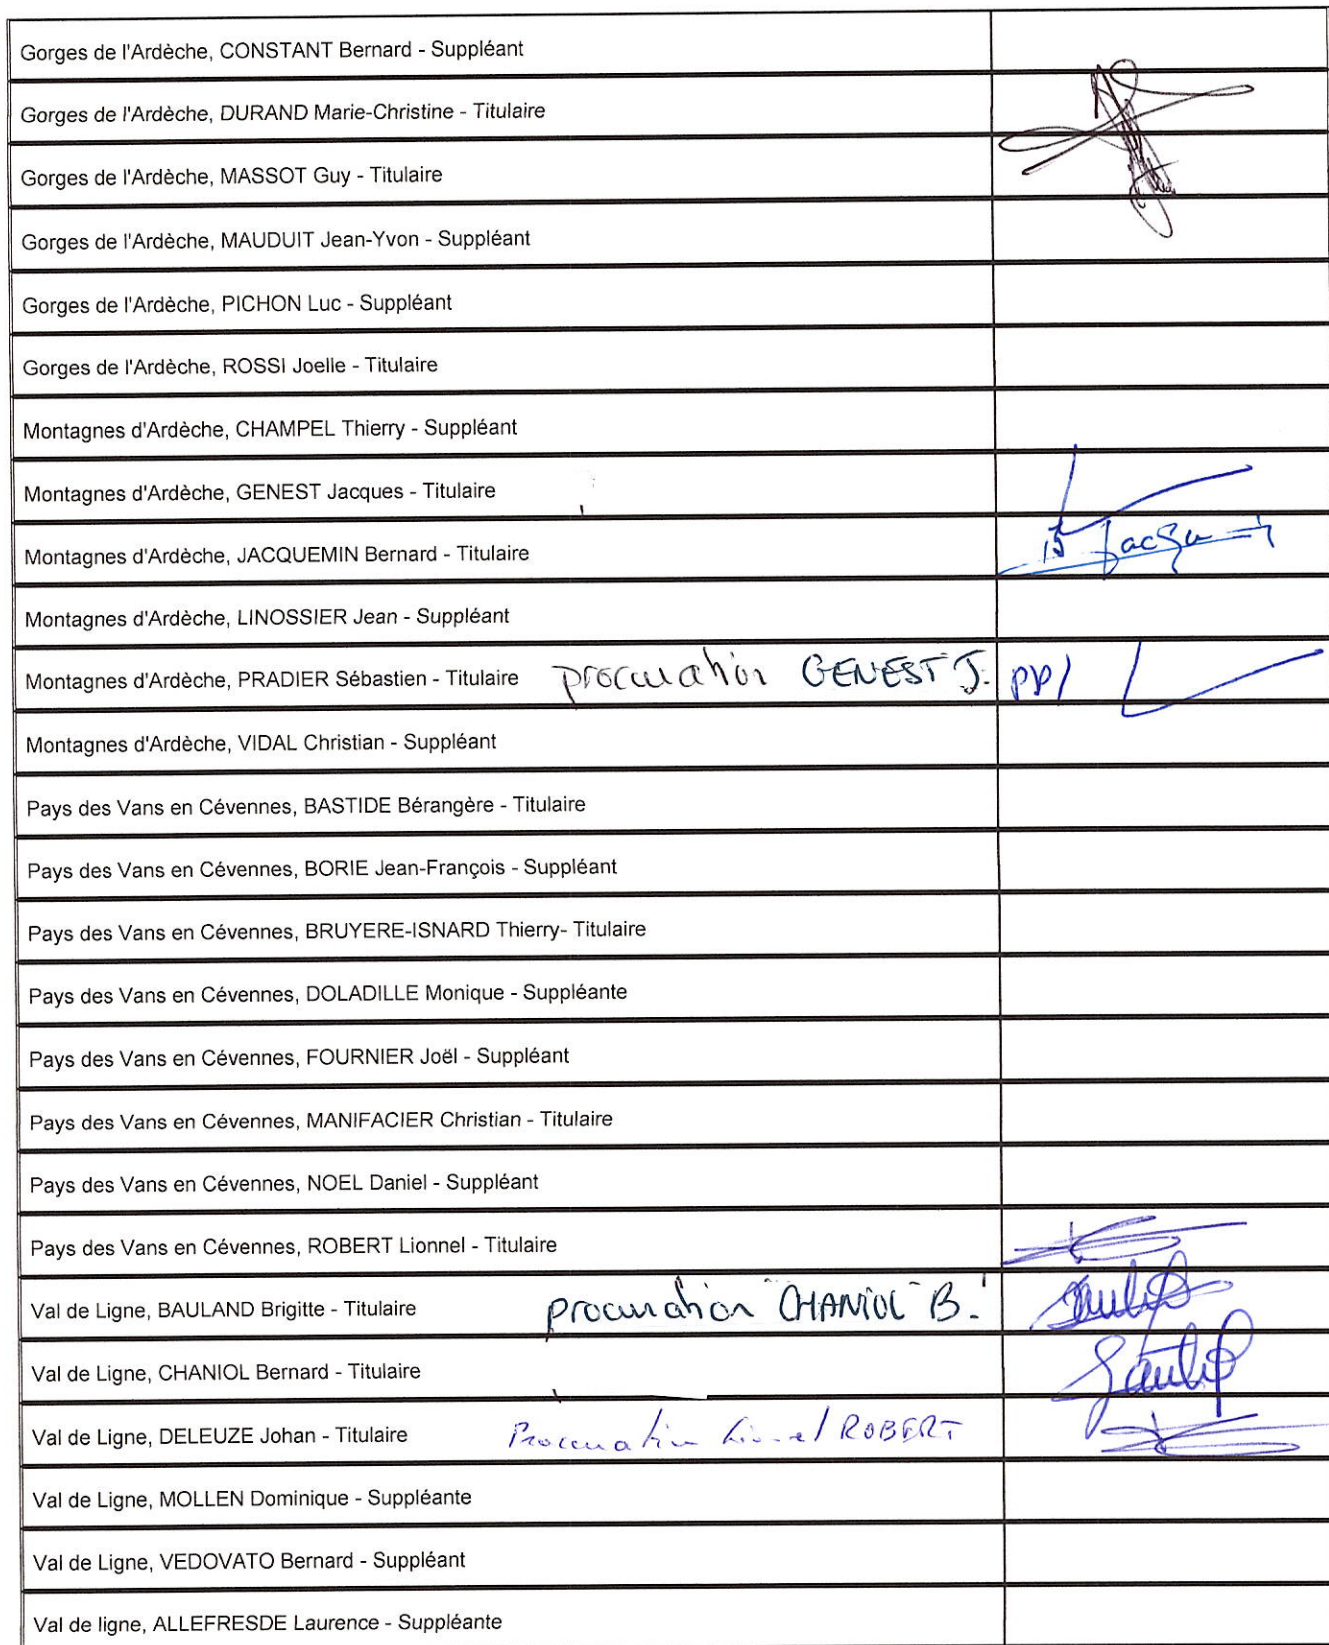 Gorges de l'Ardèche, CONSTANT Bernard - Suppléant
Gorges de l'Ardèche, DURAND Marie-Christine - Titulaire
Gorges de l'Ardèche, MASSOT Guy - Titulaire
Gorges de l'Ardèche, MAUDUIT Jean-Yvon - Suppléant
Gorges de l'Ardèche, PICHON Luc - Suppléant
Gorges de l'Ardèche, ROSSI Joelle - Titulaire
Montagnes d'Ardèche, CHAMPEL Thierry - Suppléant
Montagnes d'Ardèche, GENEST Jacques - Titulaire
Montagnes d'Ardèche, JACQUEMIN Bernard - Titulaire
Montagnes d'Ardèche, LINOSSIER Jean - Suppléant
Montagnes d'Ardèche, PRADIER Sébastien - Titulaire procuration GENEST J. pp/
Montagnes d'Ardèche, VIDAL Christian - Suppléant
Pays des Vans en Cévennes, BASTIDE Bérangère - Titulaire
Pays des Vans en Cévennes, BORIE Jean-François - Suppléant
Pays des Vans en Cévennes, BRUYERE-ISNARD Thierry- Titulaire
Pays des Vans en Cévennes, DOLADILLE Monique - Suppléante
Pays des Vans en Cévennes, FOURNIER Joël - Suppléant
Pays des Vans en Cévennes, MANIFACIER Christian - Titulaire
Pays des Vans en Cévennes, NOEL Daniel - Suppléant
Pays des Vans en Cévennes, ROBERT Lionnel - Titulaire
Val de Ligne, BAULAND Brigitte - Titulaire procuration CHANIOL B.
Val de Ligne, CHANIOL Bernard - Titulaire
Val de Ligne, DELEUZE Johan - Titulaire Procuration Lionel ROBERT
Val de Ligne, MOLLEN Dominique - Suppléante
Val de Ligne, VEDOVATO Bernard - Suppléant
Val de ligne, ALLEFRESDE Laurence - Suppléante